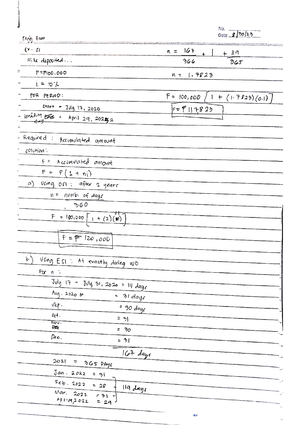 No.
Date 8/30/23
Engg Econ
Ex. 51
n = 167 + 1 + 119
366 365
₱ be deposited...
n = 1.7823
P = ₱100,000
i = 10%
F = 100,000 [1 + (1.7823)(0.1)]
FOR PERIOD:
F = ₱ 117823
Start = July 17, 2020
= April 29, 2022
Required: Accumulated amount
Solution:
F = Accumulated amount
F = P (1 + ni)
a) Using OSI: after 2 years
n = number of days
360
F = 100,000 [1 + (2)(.1)]
F = ₱ 120,000
b) Using ESI: At exactly during end
For n:
July 17 - July 31, 2020 = 14 days
Aug. 2020 = 31 days
= 30 days
Oct. = 31
Nov. = 30
Dec. = 31
167 days
2021 = 365 days
Jan. 2022 = 31
Feb. 2022 = 28 119 days
Mar. 2022 = 31
April, 2022 = 29